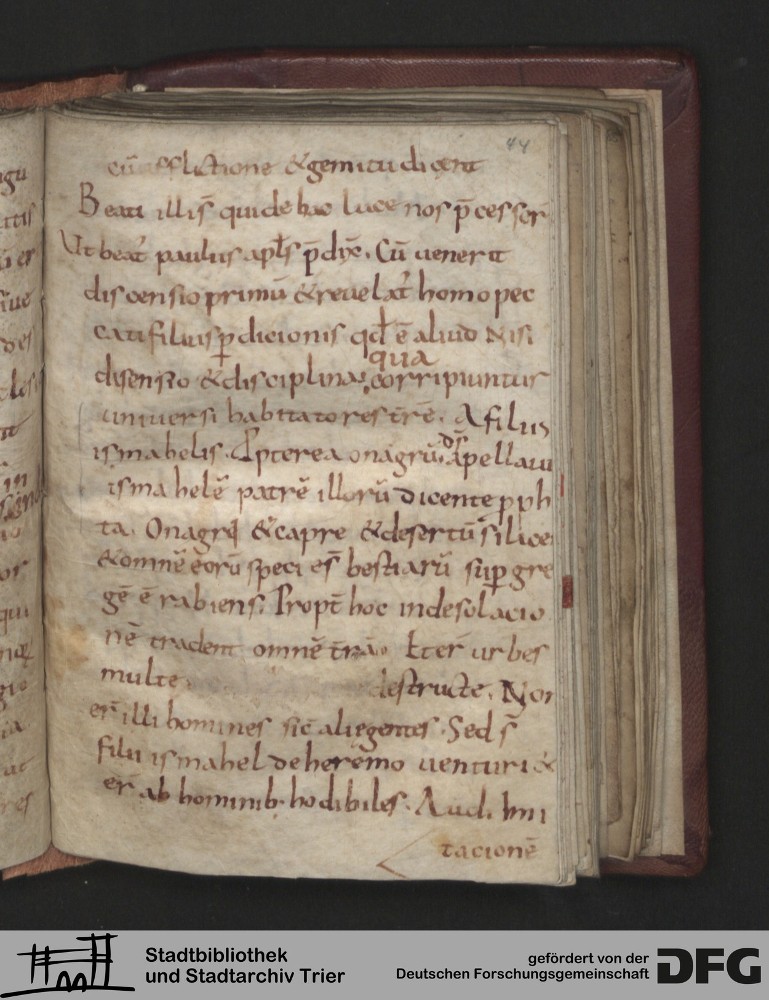 44
cū afflictione & gemitu dicent
Beati illi s̄ qui de hac luce nos p̄cesser̄
Ut beat᷒ paulus apl̄s p̄dix̄. Cū uenerit
discensio primū & reuelat᷒ homo pec
cati filius ꝑdicionis qd̄ ē aliud Nisi
disensio & disciplina; qua corripiuntur
uniuersi habitatores tr̄e. A filiis
ismahelis. Ꝓpterea onagrū d̄s apellauit
ismahelē patrē illorū dicente ꝓph
ta. Onagri & capre & desertū silice
& omnē eorū speci es̄ bestiarū suꝑ gre
gē ē rabiens; Propt̄ hoc in desolacio
nē tradent omnē t̄rā. Et er̄ urbes
multe destructe. Non
er̄ illi homines sic̄ alię gentes. Sed s̄
filii ismahel de heremo uenturi &
er̄ ab hominib; hodibiles. Aud. Imi
tacionē
Stadtbibliothek
und Stadtarchiv Trier
gefördert von der
Deutschen Forschungsgemeinschaft
DFG